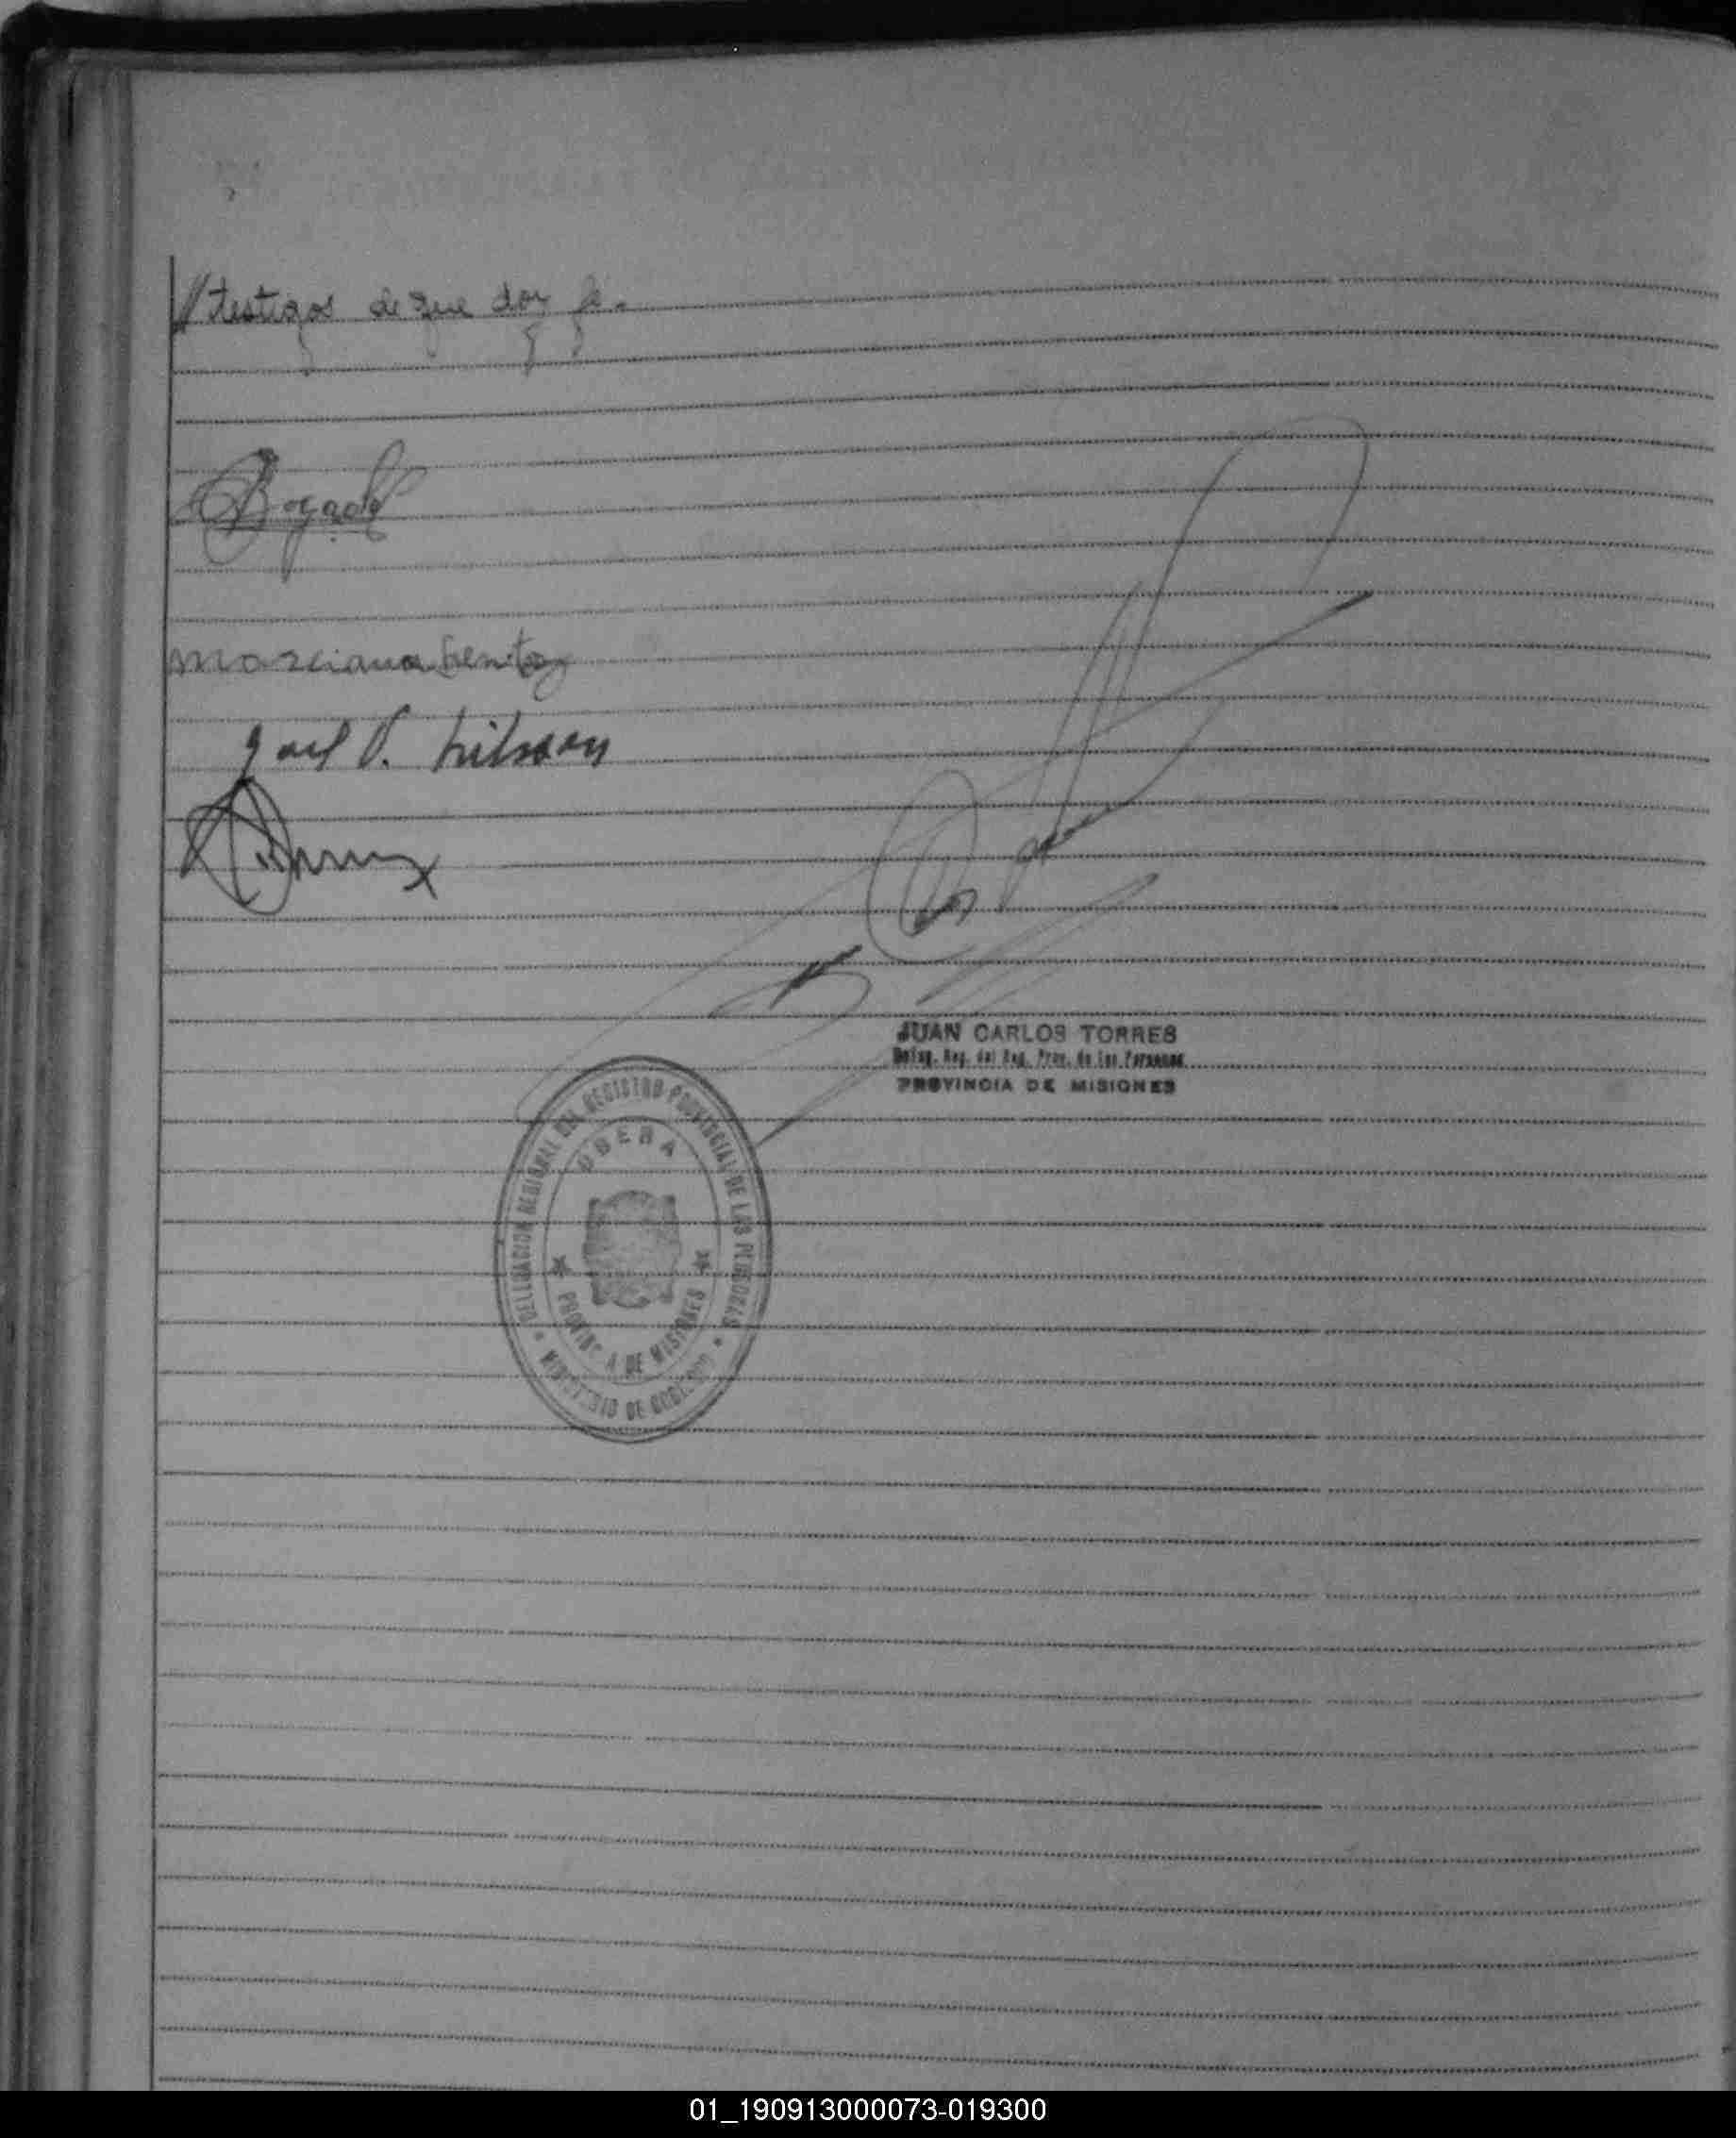 // testigos de que doy fe.-
Bogado
marciana benitez
JUAN CARLOS TORRES
Deleg. Reg. del Reg. Prov. de las Personas
PROVINCIA DE MISIONES
DELEGACION REGIONAL DEL REGISTRO PROVINCIAL DE LAS PERSONAS
OBERA
PROVINCIA DE MISIONES
MINISTERIO DE GOBIERNO
01_190913000073-019300